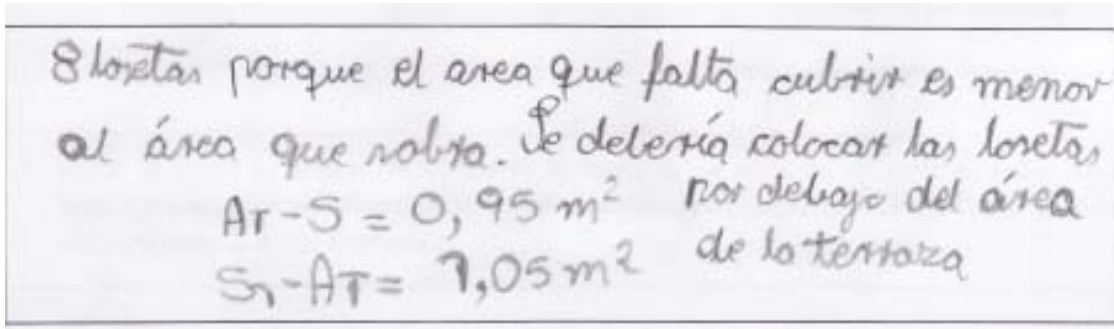 8 losetas porque el area que falta cubrir es menor
al área que sobra. Se debería colocar las losetas
por debajo del área
de la terraza
AT-S = 0,95 m²
S₁-AT = 1,05 m²